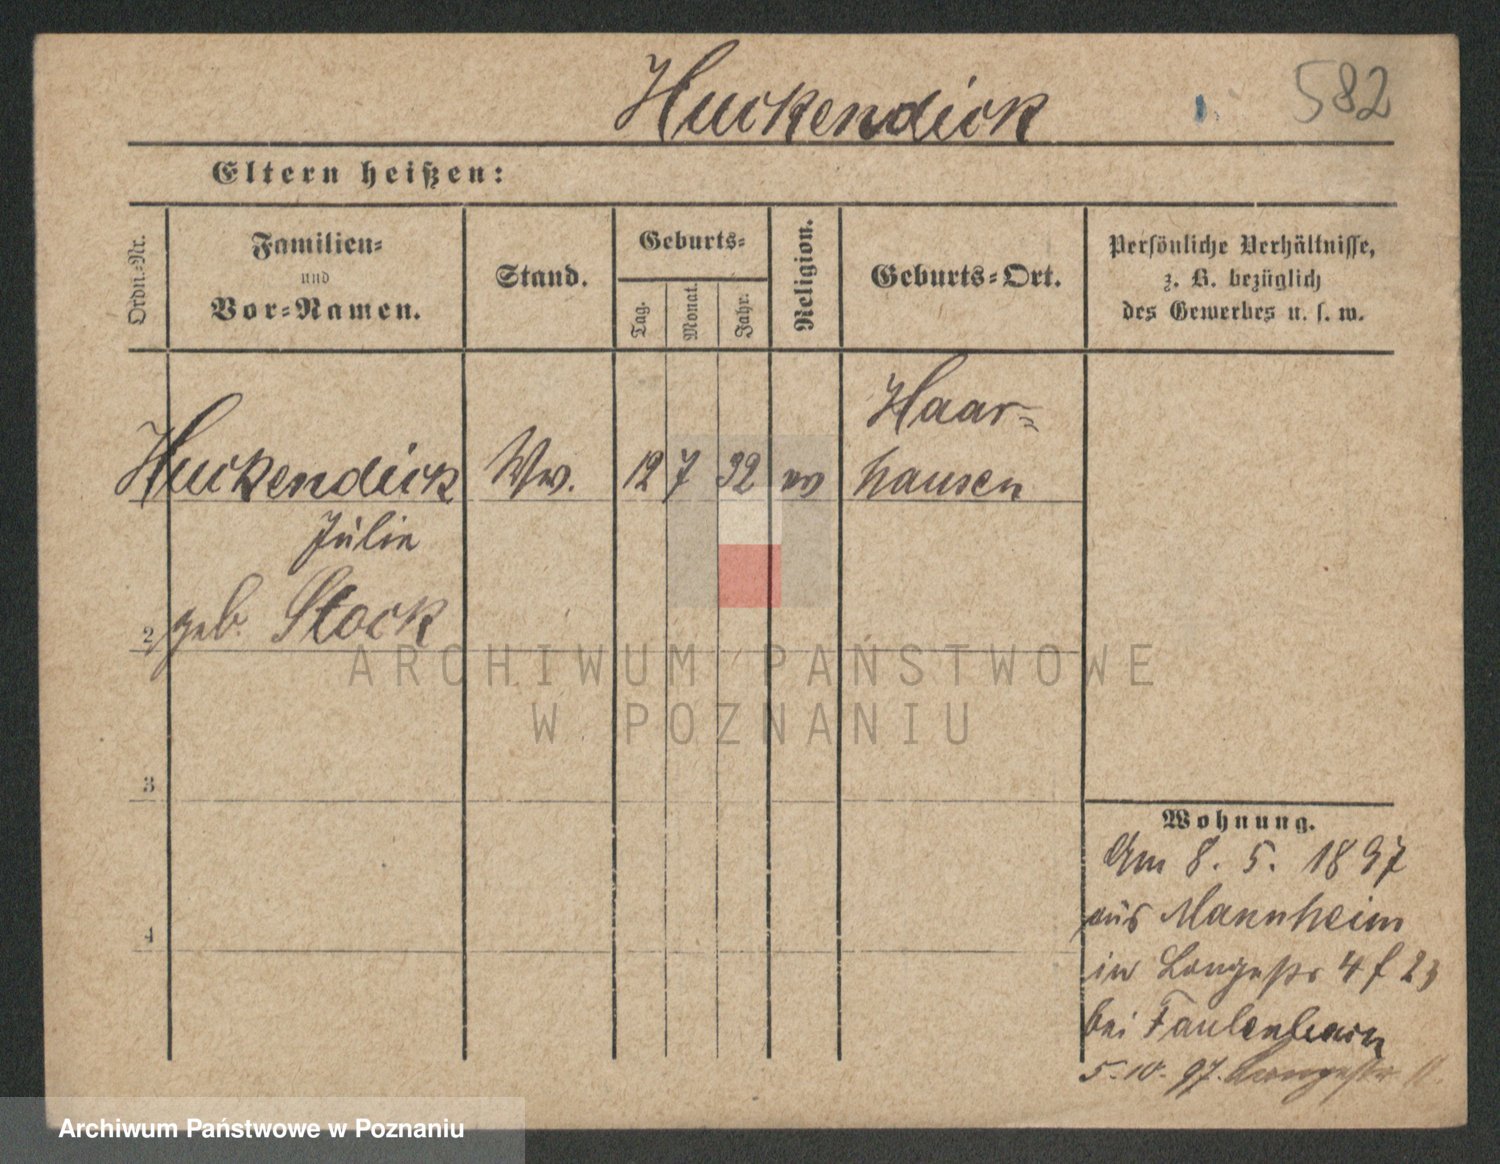 Huckendick
582
Eltern heißen:
Ordn.-Nr.
Familien-
und
Vor-Namen.
Stand.
Geburts-
Tag.
Monat.
Jahr.
Religion.
Geburts-Ort.
Persönliche Verhältnisse,
z. B. bezüglich
des Gewerbes u. s. w.
Huckendick Ww. 12 7 32 Haar-
hausen
Julie
2 geb. Stock
3
4
Wohnung.
Am 8. 5. 1897
aus Mannheim
in Langestr 4
bei
5.10.97. Langestr
ARCHIWUM PAŃSTWOWE
W POZNANIU
Archiwum Państwowe w Poznaniu